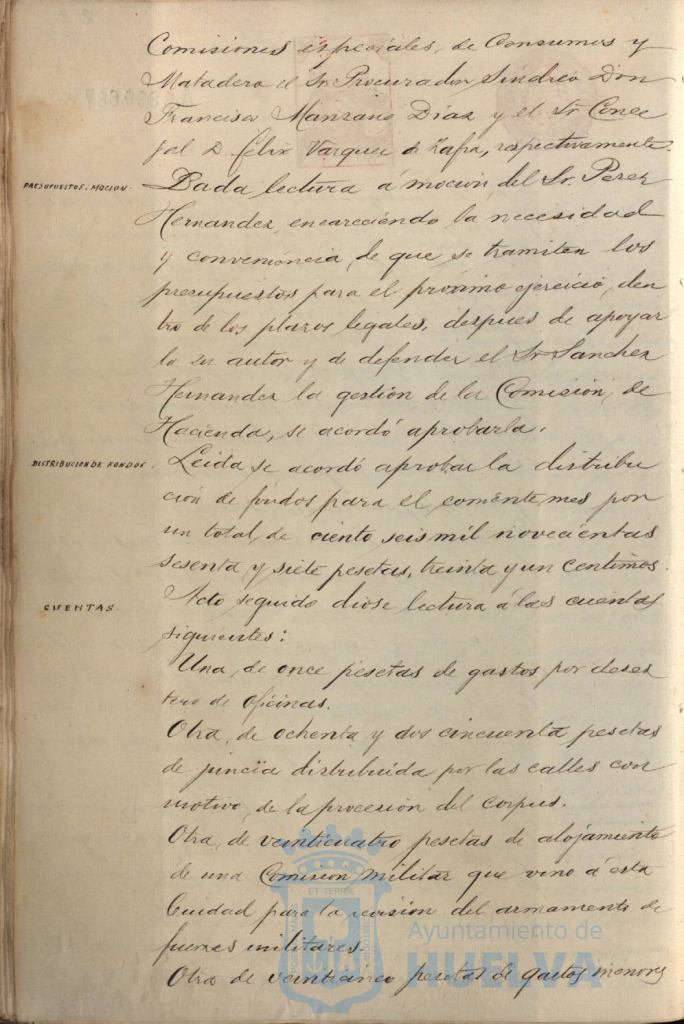 Comisiones especiales, de Consumos y
Matadero el Sr. Procurador Síndico Don
Francisco Manzano Díaz y el Sr. Conce
jal D. Félix Vazquez de Zafra, respectivamente.
PRESUPUESTOS. MOCION.
Dada lectura á moción del Sr. Perez
Hernandez, encareciendo la necesidad
y conveniencia de que se tramiten los
presupuestos para el próximo ejercicio, den
tro de los plazos legales, despues de apoyar
la su autor y de defender el Sr. Sanchez
Hernandez la gestión de la Comisión de
Hacienda, se acordó aprobarla.
DISTRIBUCION DE FONDOS.
Leida se acordó aprobar la distribu
ción de fondos para el corriente mes por
un total de ciento seis mil novecientas
sesenta y siete pesetas, treinta y un centimos.
CUENTAS.
Acto seguido diose lectura á las cuentas
siguientes:
Una, de once pesetas de gastos por deses
tero de oficinas.
Otra, de ochenta y dos cincuenta pesetas
de juncia distribuida por las calles con
motivo de la procesión del Corpus.
Otra, de veinticuatro pesetas de alojamiento
de una Comision militar que vino á esta
Ciudad para la revisión del armamento de
fuerzas militares.
Otra de veinticinco pesetas de gastos menores
Ayuntamiento de
HUELVA